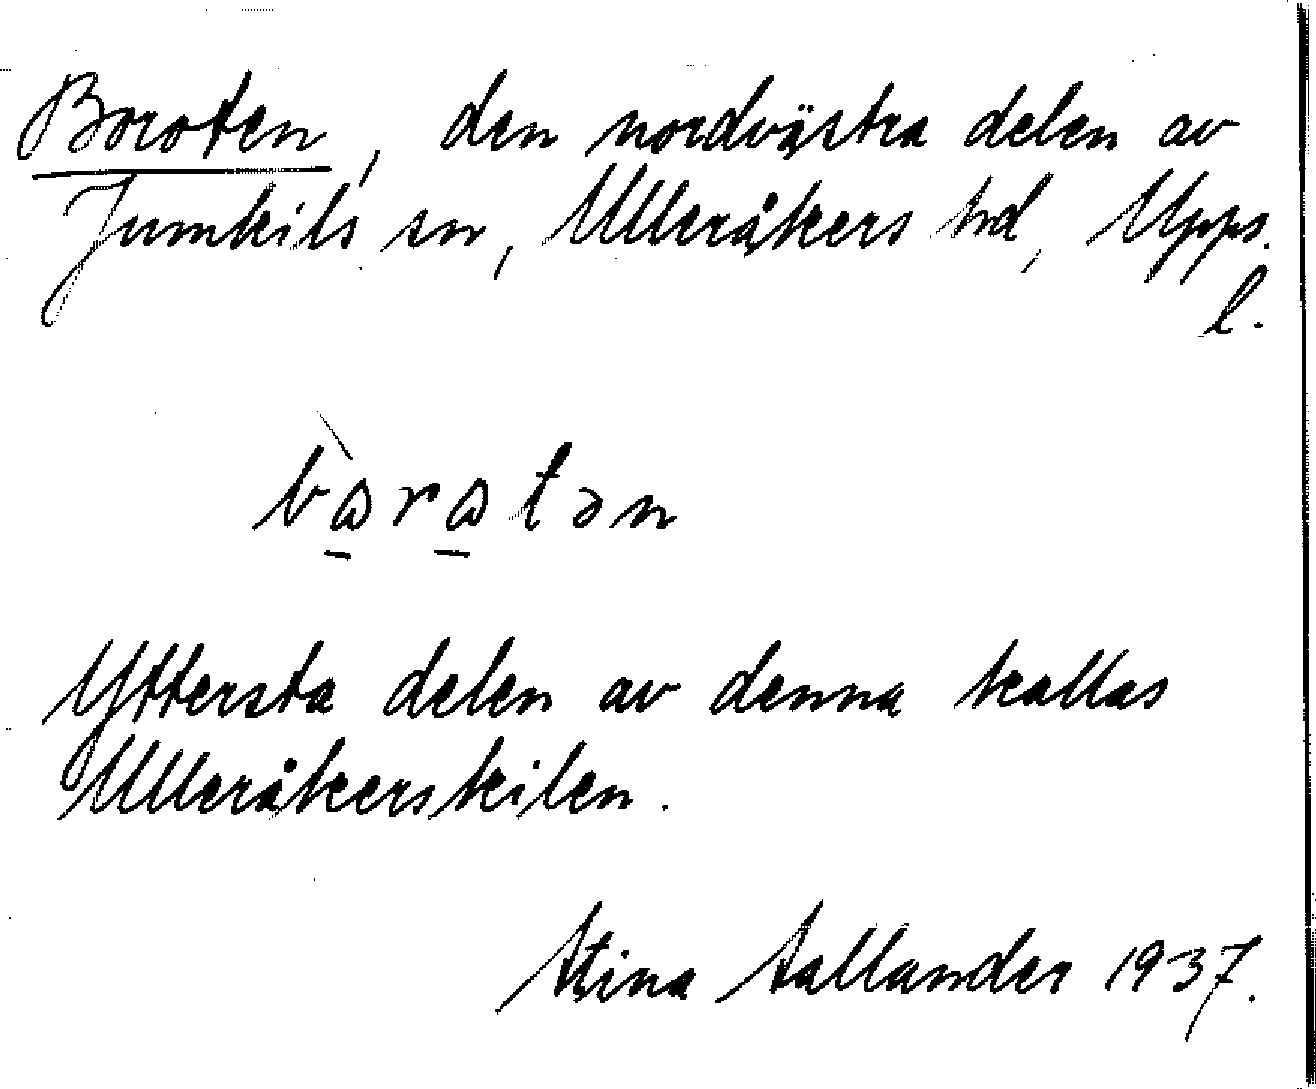 Boroten, den nordvästra delen av
Jumkils sn, Ulleråkers hd, Upps.
l.
bὼrωtən
Yttersta delen av denna kallas
Ulleråkerskilen.
Stina Sallander 1937.